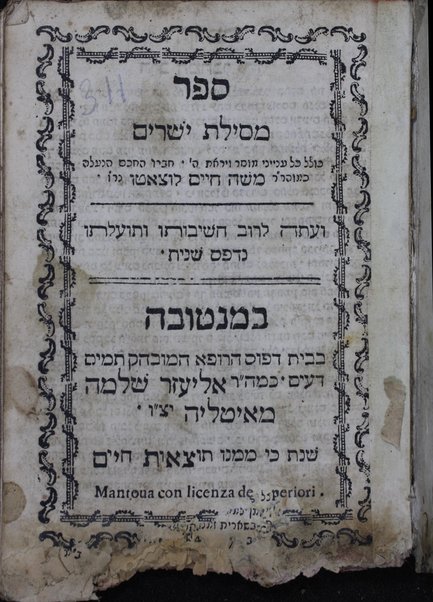 311
ספר
מסילת ישרים
כולל כל ענייני מוסר ויראת ה׳ ׳ חברו החכם הנעלה
כמוהר״ר משה חיים לוצאטו נר״ו
ועתה לרוב חשיבותו ותועלתו
נדפס שנית ׳
במנטובה
בבית דפוס הרופא המובהק תמים
דעים ׳ כמה״ר אליעזר שלמה
מאיטליה יצ״ו ׳
שנת כי ממנו תוצאות חיים
Mantoua con licenza de periori .